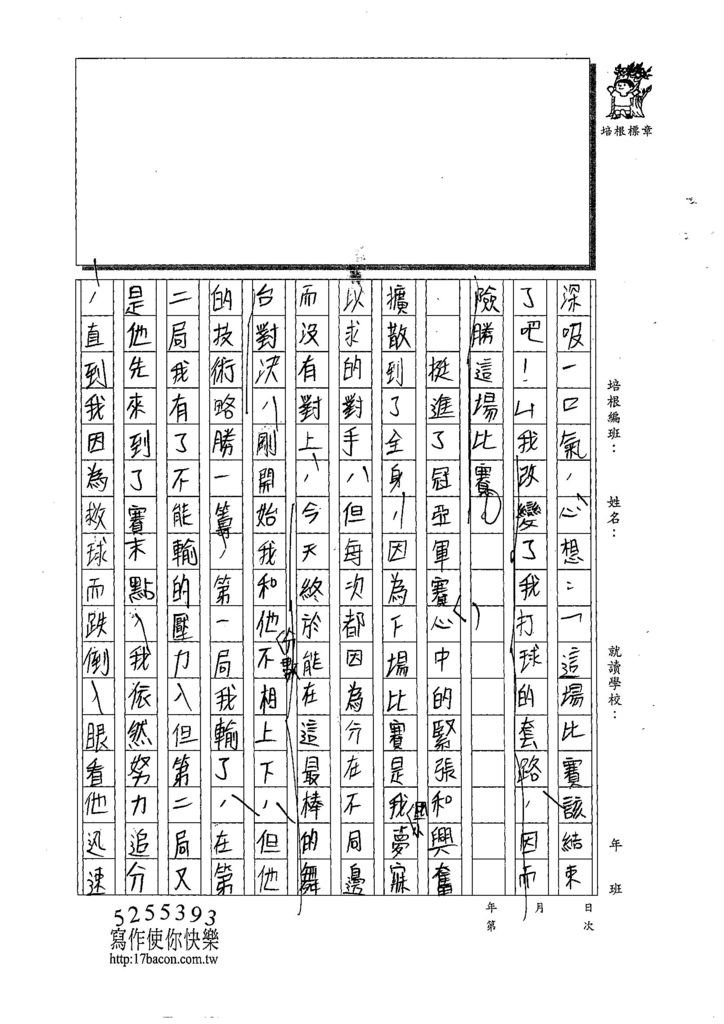 培根標章
培根編班：
姓名：
就讀學校：
年 班
深吸一口氣，心想：「這場比賽該結束
了吧！」我改變了我打球的套路，因而
險勝這場比賽。
挺進了冠亞軍賽，心中的緊張和興奮
擴散到了全身，因為下場比賽是我夢寐
以求的對手，但每次都因為分在不同邊
而沒有對上，今天終於能在這最棒的舞
台對決，剛開始我和他分數不相上下，但他
的技術略勝一籌，第一局我輸了，在第
二局我有了不能輸的壓力，但第二局又
是他先來到了賽末點，我依然努力追分
，直到我因為救球而跌倒，眼看他迅速
年 月 日
第 次
5255393
寫作使你快樂
http:17bacon.com.tw